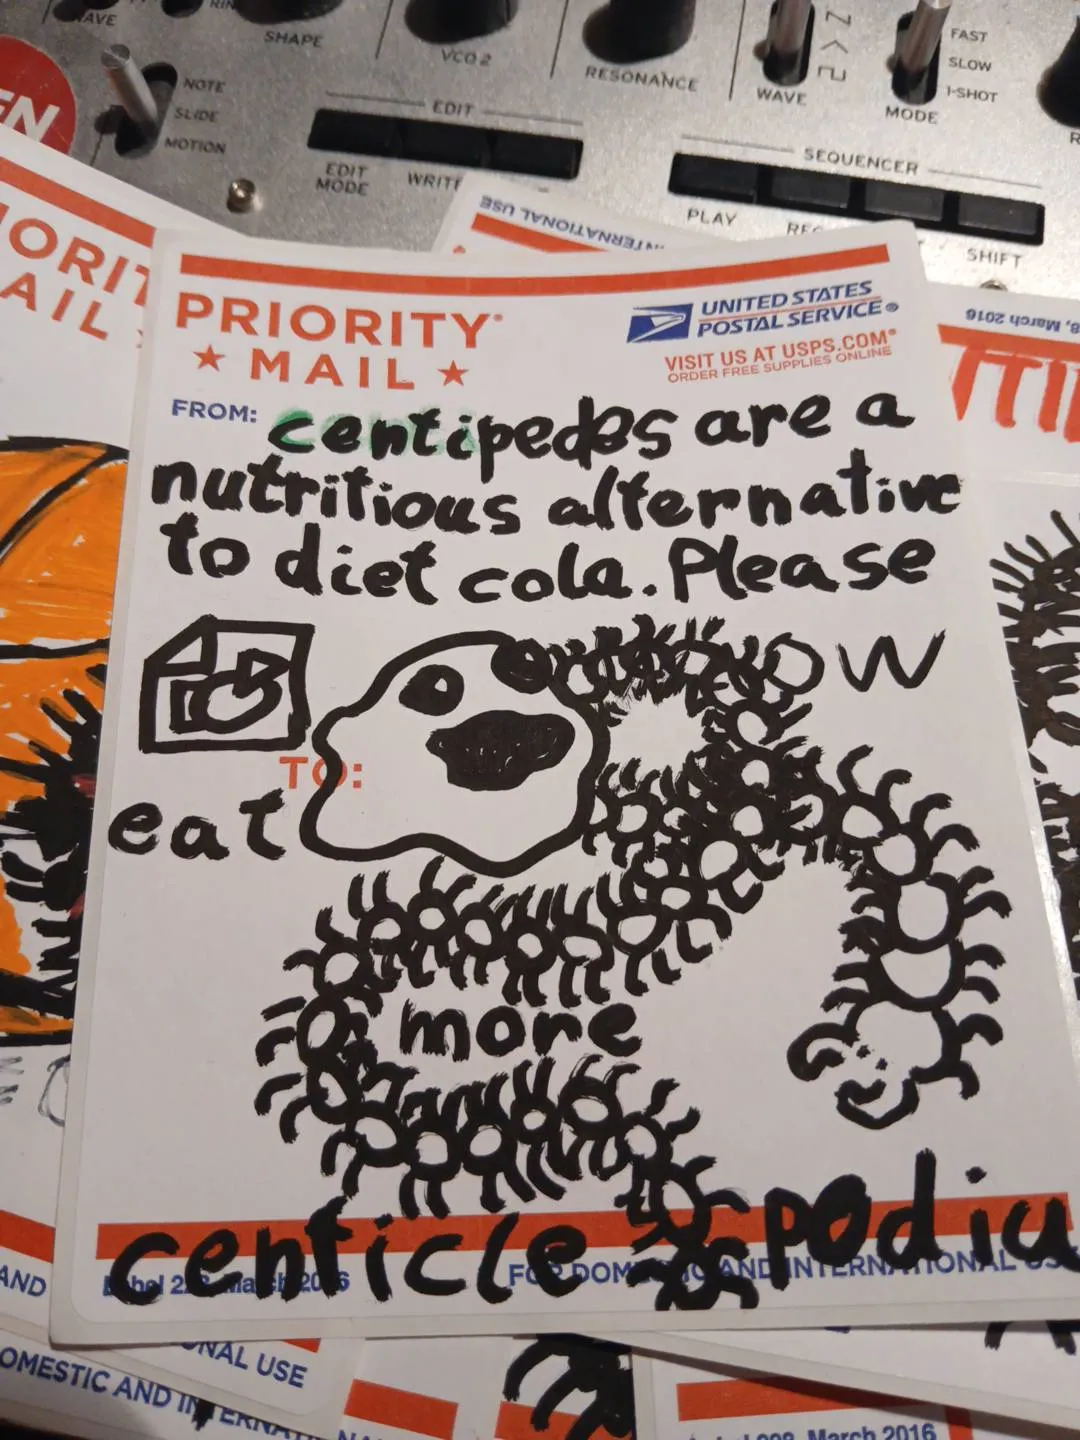 WAVE
SHAPE
VCO 2
RESONANCE
WAVE
FAST
SLOW
1-SHOT
MODE
NOTE
SLIDE
MOTION
EDIT
EDIT MODE
WRITE
SEQUENCER
PLAY
SHIFT
PRIORITY
MAIL
UNITED STATES
POSTAL SERVICE®
VISIT US AT USPS.COM®
ORDER FREE SUPPLIES ONLINE
FROM:
centipedes are a
nutritious alternative
to diet cola. Please
OW
TO:
eat
more
centicle podiu
Label 228, March 2016
FOR DOMESTIC AND INTERNATIONAL US
AND
ONAL USE
OMESTIC AND INTERNA
March 2016